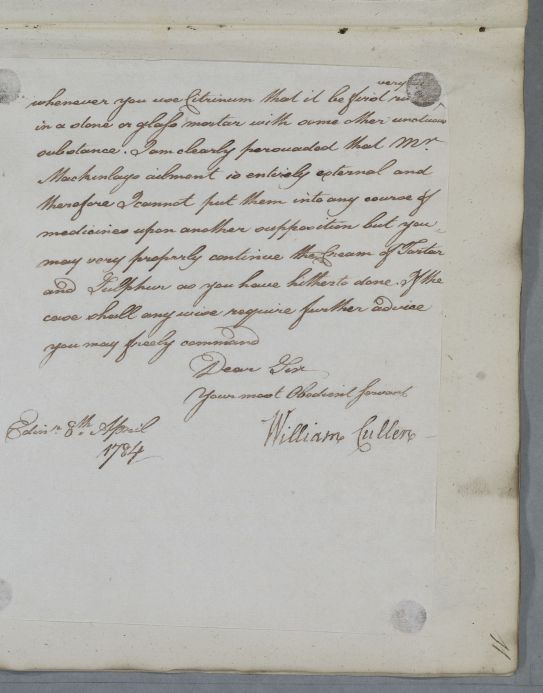 very
whenever you use Citrinum that it be first
in a stone or glass mortar with some other unctuous
substance. I am clearly persuaded that Mr.
Mackinlays ailment is entirely external and
therefore I cannot put them into any course of
medicines upon another supposition but you
may very properly continue the Cream of Tartar
and Sulphur as you have hitherto done. If the
case shall any wise require further advice
you may freely command
Dear Sir
Your most Obedient Servant
William Cullen
Edinr. 8th. April
1784